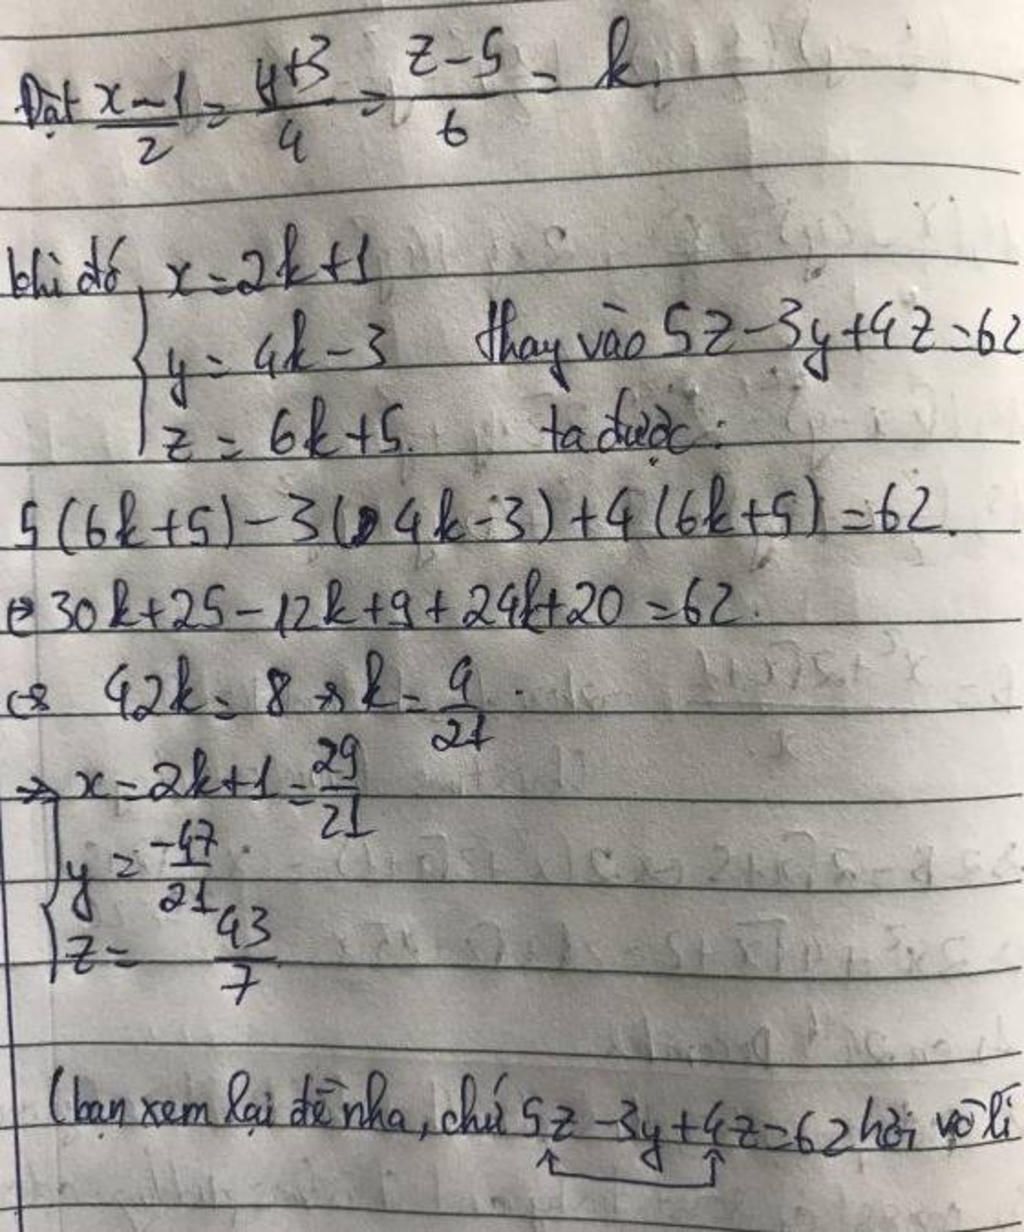 Đặt x-1/2 = y+3/4 = z-5/6 = k.
khi đó { x = 2k+1
y = 4k-3 thay vào 5z-3y+4z=62
z = 6k+5. ta được:
5(6k+5)-3(4k-3)+4(6k+5)=62.
⇔ 30k+25-12k+9+24k+20=62.
⇔ 42k = 8 ⇒ k = 4/21.
⇒ { x = 2k+1 = 29/21
y = -47/21.
z = 43/7
(bạn xem lại đề nha, chứ 5z-3y+4z=62 hơi vô lí